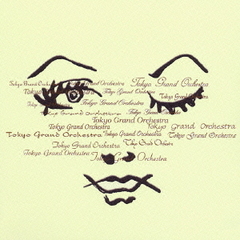 Tokyo Grand Orchestra Tokyo Grand Orchestra Tokyo Grand Orchestra
Tokyo Grand Orchestra Tokyo Grand Orchestra
Tokyo Grand Orchestra
Tokyo Grand Orchestra
Tokyo Grand Orchestra
Tokyo Grand Orchestra Tokyo Grand Orchestra
Tokyo Grand Orchestra Tokyo Grand Orchestra Tokyo Grand Orchestra
Tokyo Grand Orchestra Tokyo Grand Orchestra
Tokyo Grand Orchestra
Tokyo Grand Orchestra